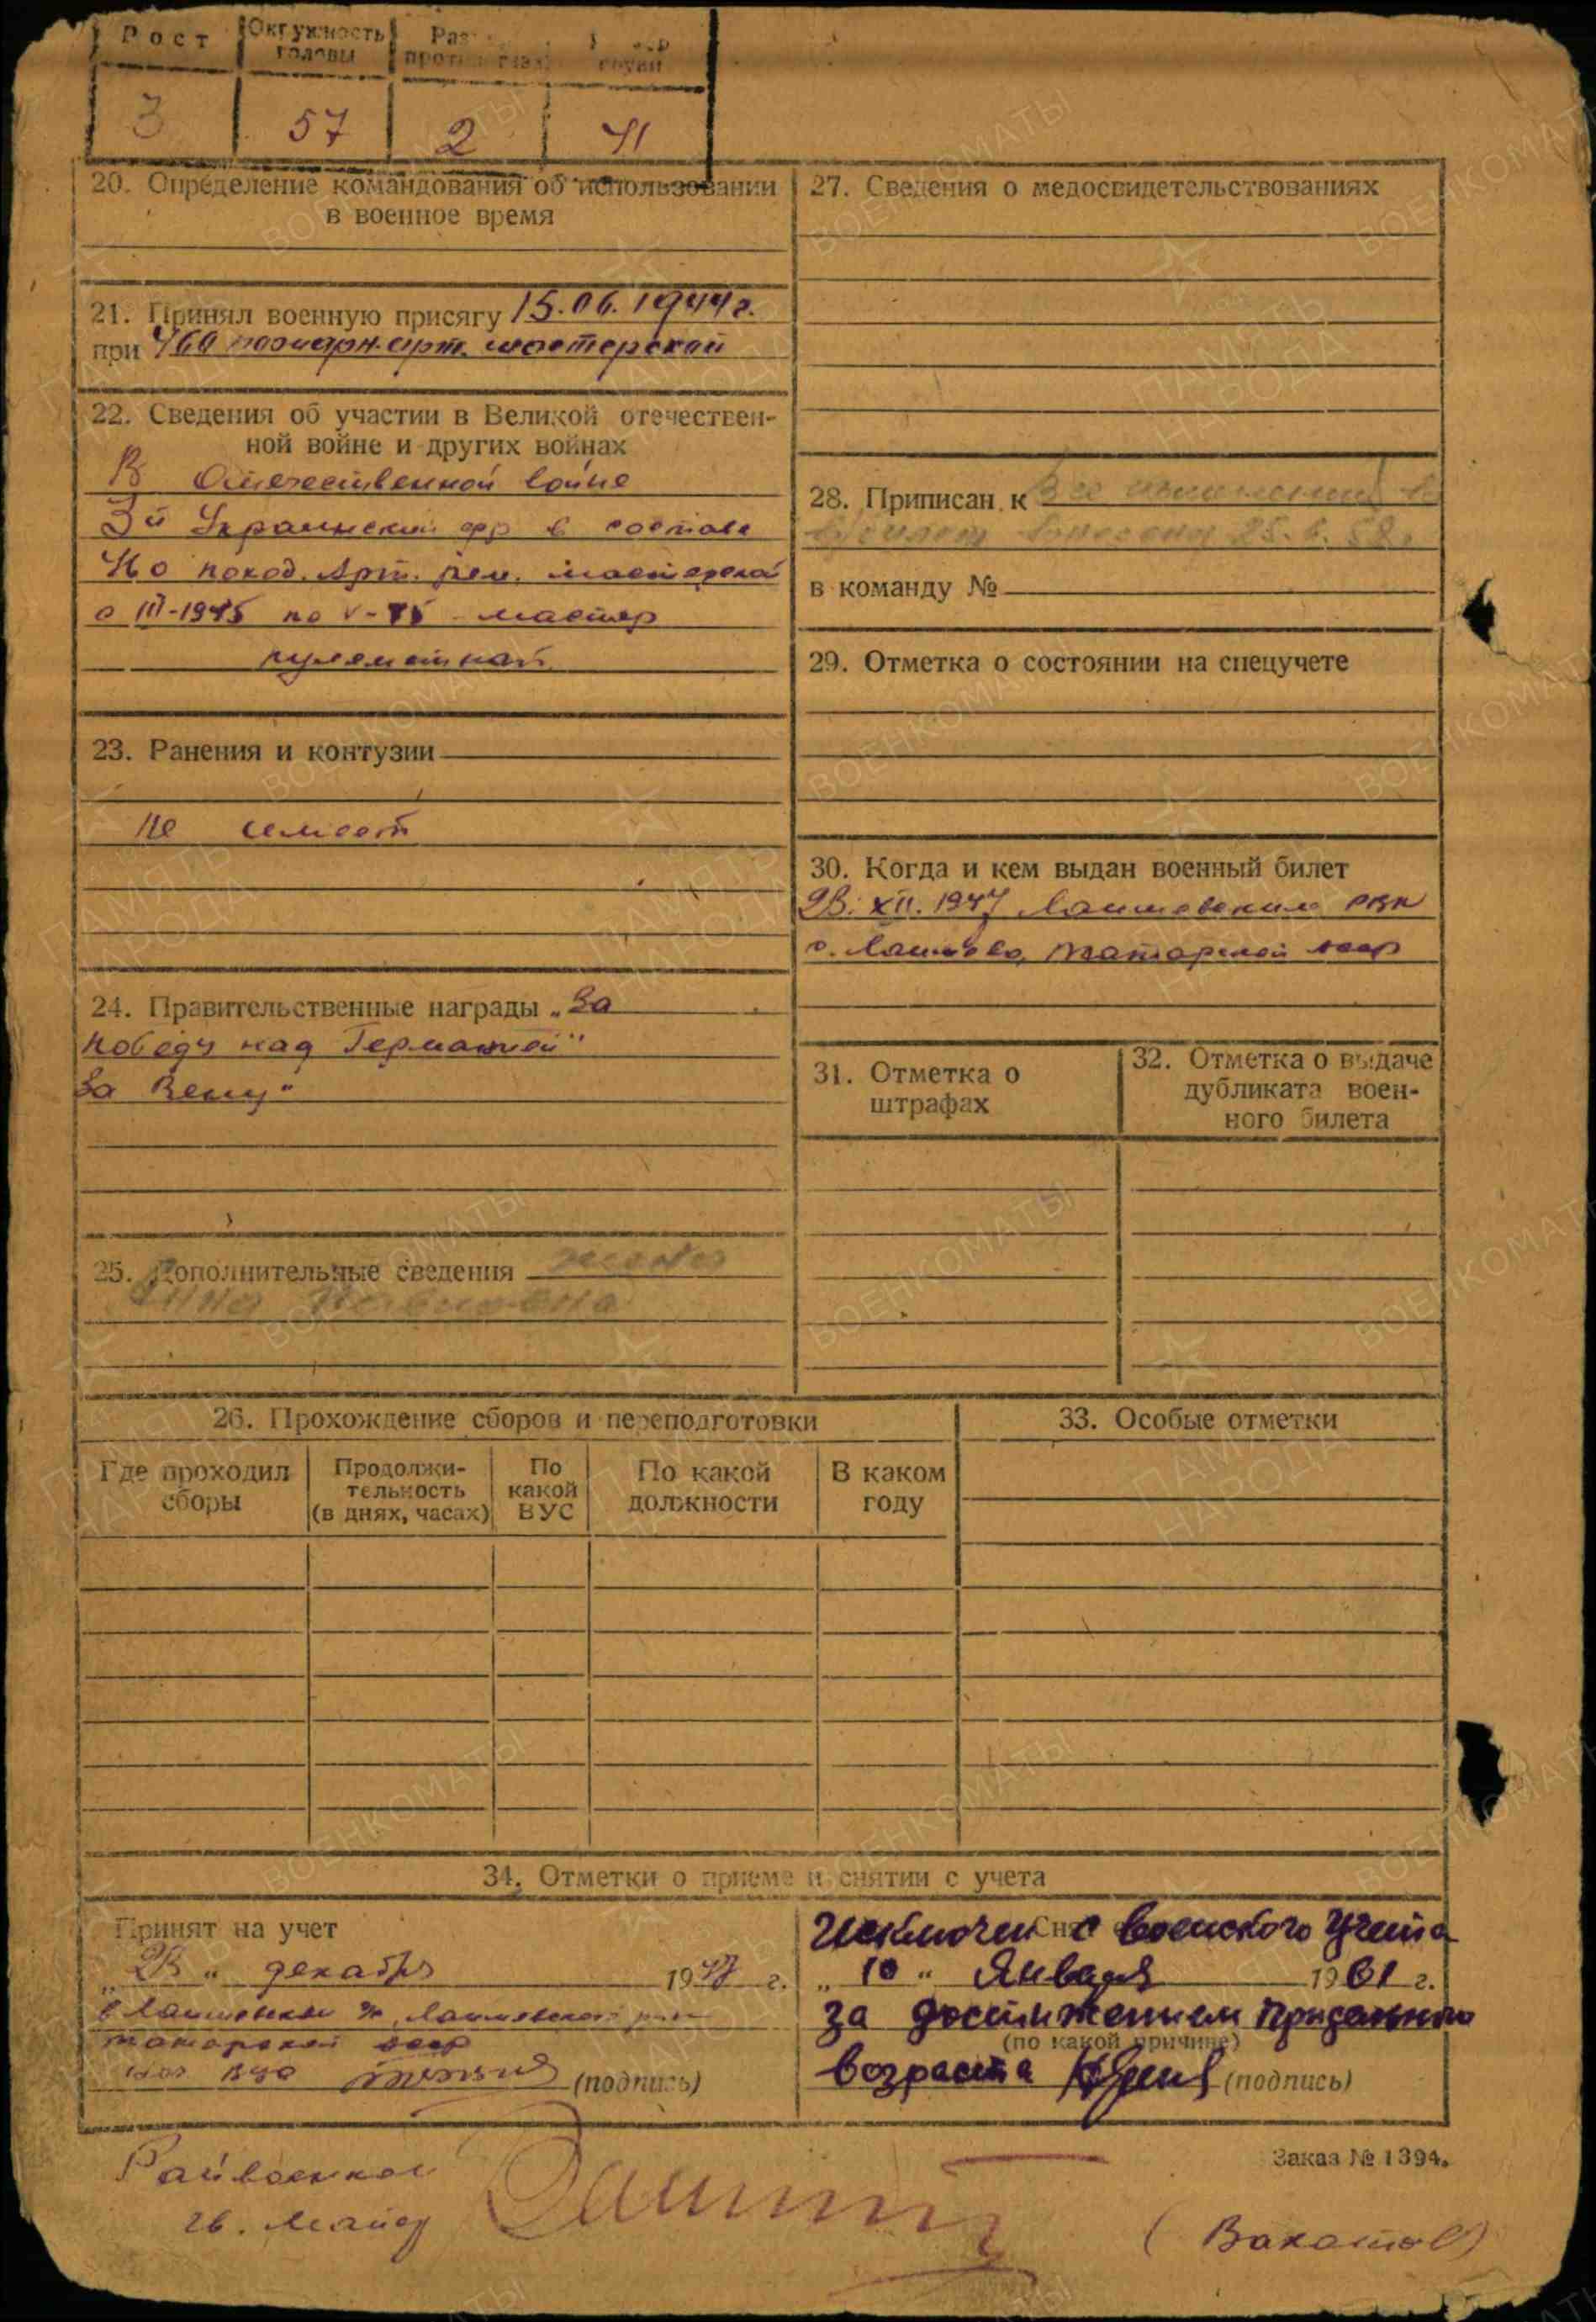 Рост
Окружность головы
Раз
против
3
57
2
41
20. Определение командования об использовании
в военное время
21. Принял военную присягу 15.06.1944 г.
при арт. мастерской
22. Сведения об участии в Великой отечествен-
ной войне и других войнах
В Отечественной войне
3й Украинский фр в составе
поход. Арт. рем. мастерской
с III-1945 по V-45 - мастер
пулеметной
23. Ранения и контузии
не имеет
24. Правительственные награды „За
победу над Германией"
За Вену"
25. Дополнительные сведения жена
Анна
26. Прохождение сборов и переподготовки
Где проходил
сборы
Продолжи-
тельность
(в днях, часах)
По
какой
ВУС
По какой
должности
В каком
году
27. Сведения о медосвидетельствованиях
28. Приписан к Все изменения в
внесены 25.6.58г
в команду №
29. Отметка о состоянии на спецучете
30. Когда и кем выдан военный билет
23. XII. 1947 Лаишевским РВК
с. Лаишево, Татарской АССР
31. Отметка о
штрафах
32. Отметка о выдаче
дубликата воен-
ного билета
33. Особые отметки
34. Отметки о приеме и снятии с учета
Принят на учет
„23" декабря 1947 г.
в Лаишевском Лаишевского
Татарской АССР
(подпись)
Исключен с воинского учета
„10" Января 1961 г.
за достижением предельного
(по какой причине)
возраста (подпись)
Заказ № 1394.
Райвоенком
гв. Майор